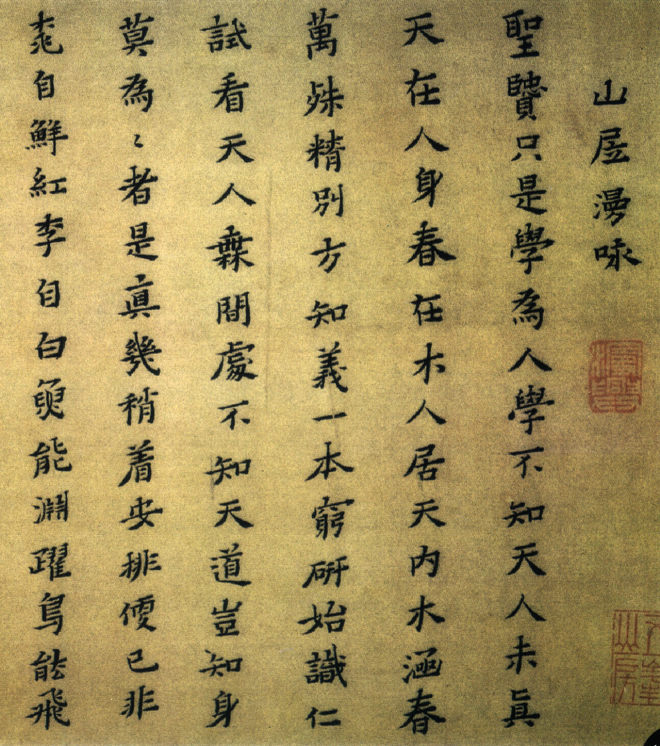 山居漫咏
聖贒只是學為人學不知天人未眞
天在人身春在木人居天内木涵春
萬殊精別方知義一本窮研始識仁
試看天人無間處不知天道豈知身
莫為〻者是眞幾稍着安排便已非
桃自鮮紅李自白魚能淵躍鳥能飛